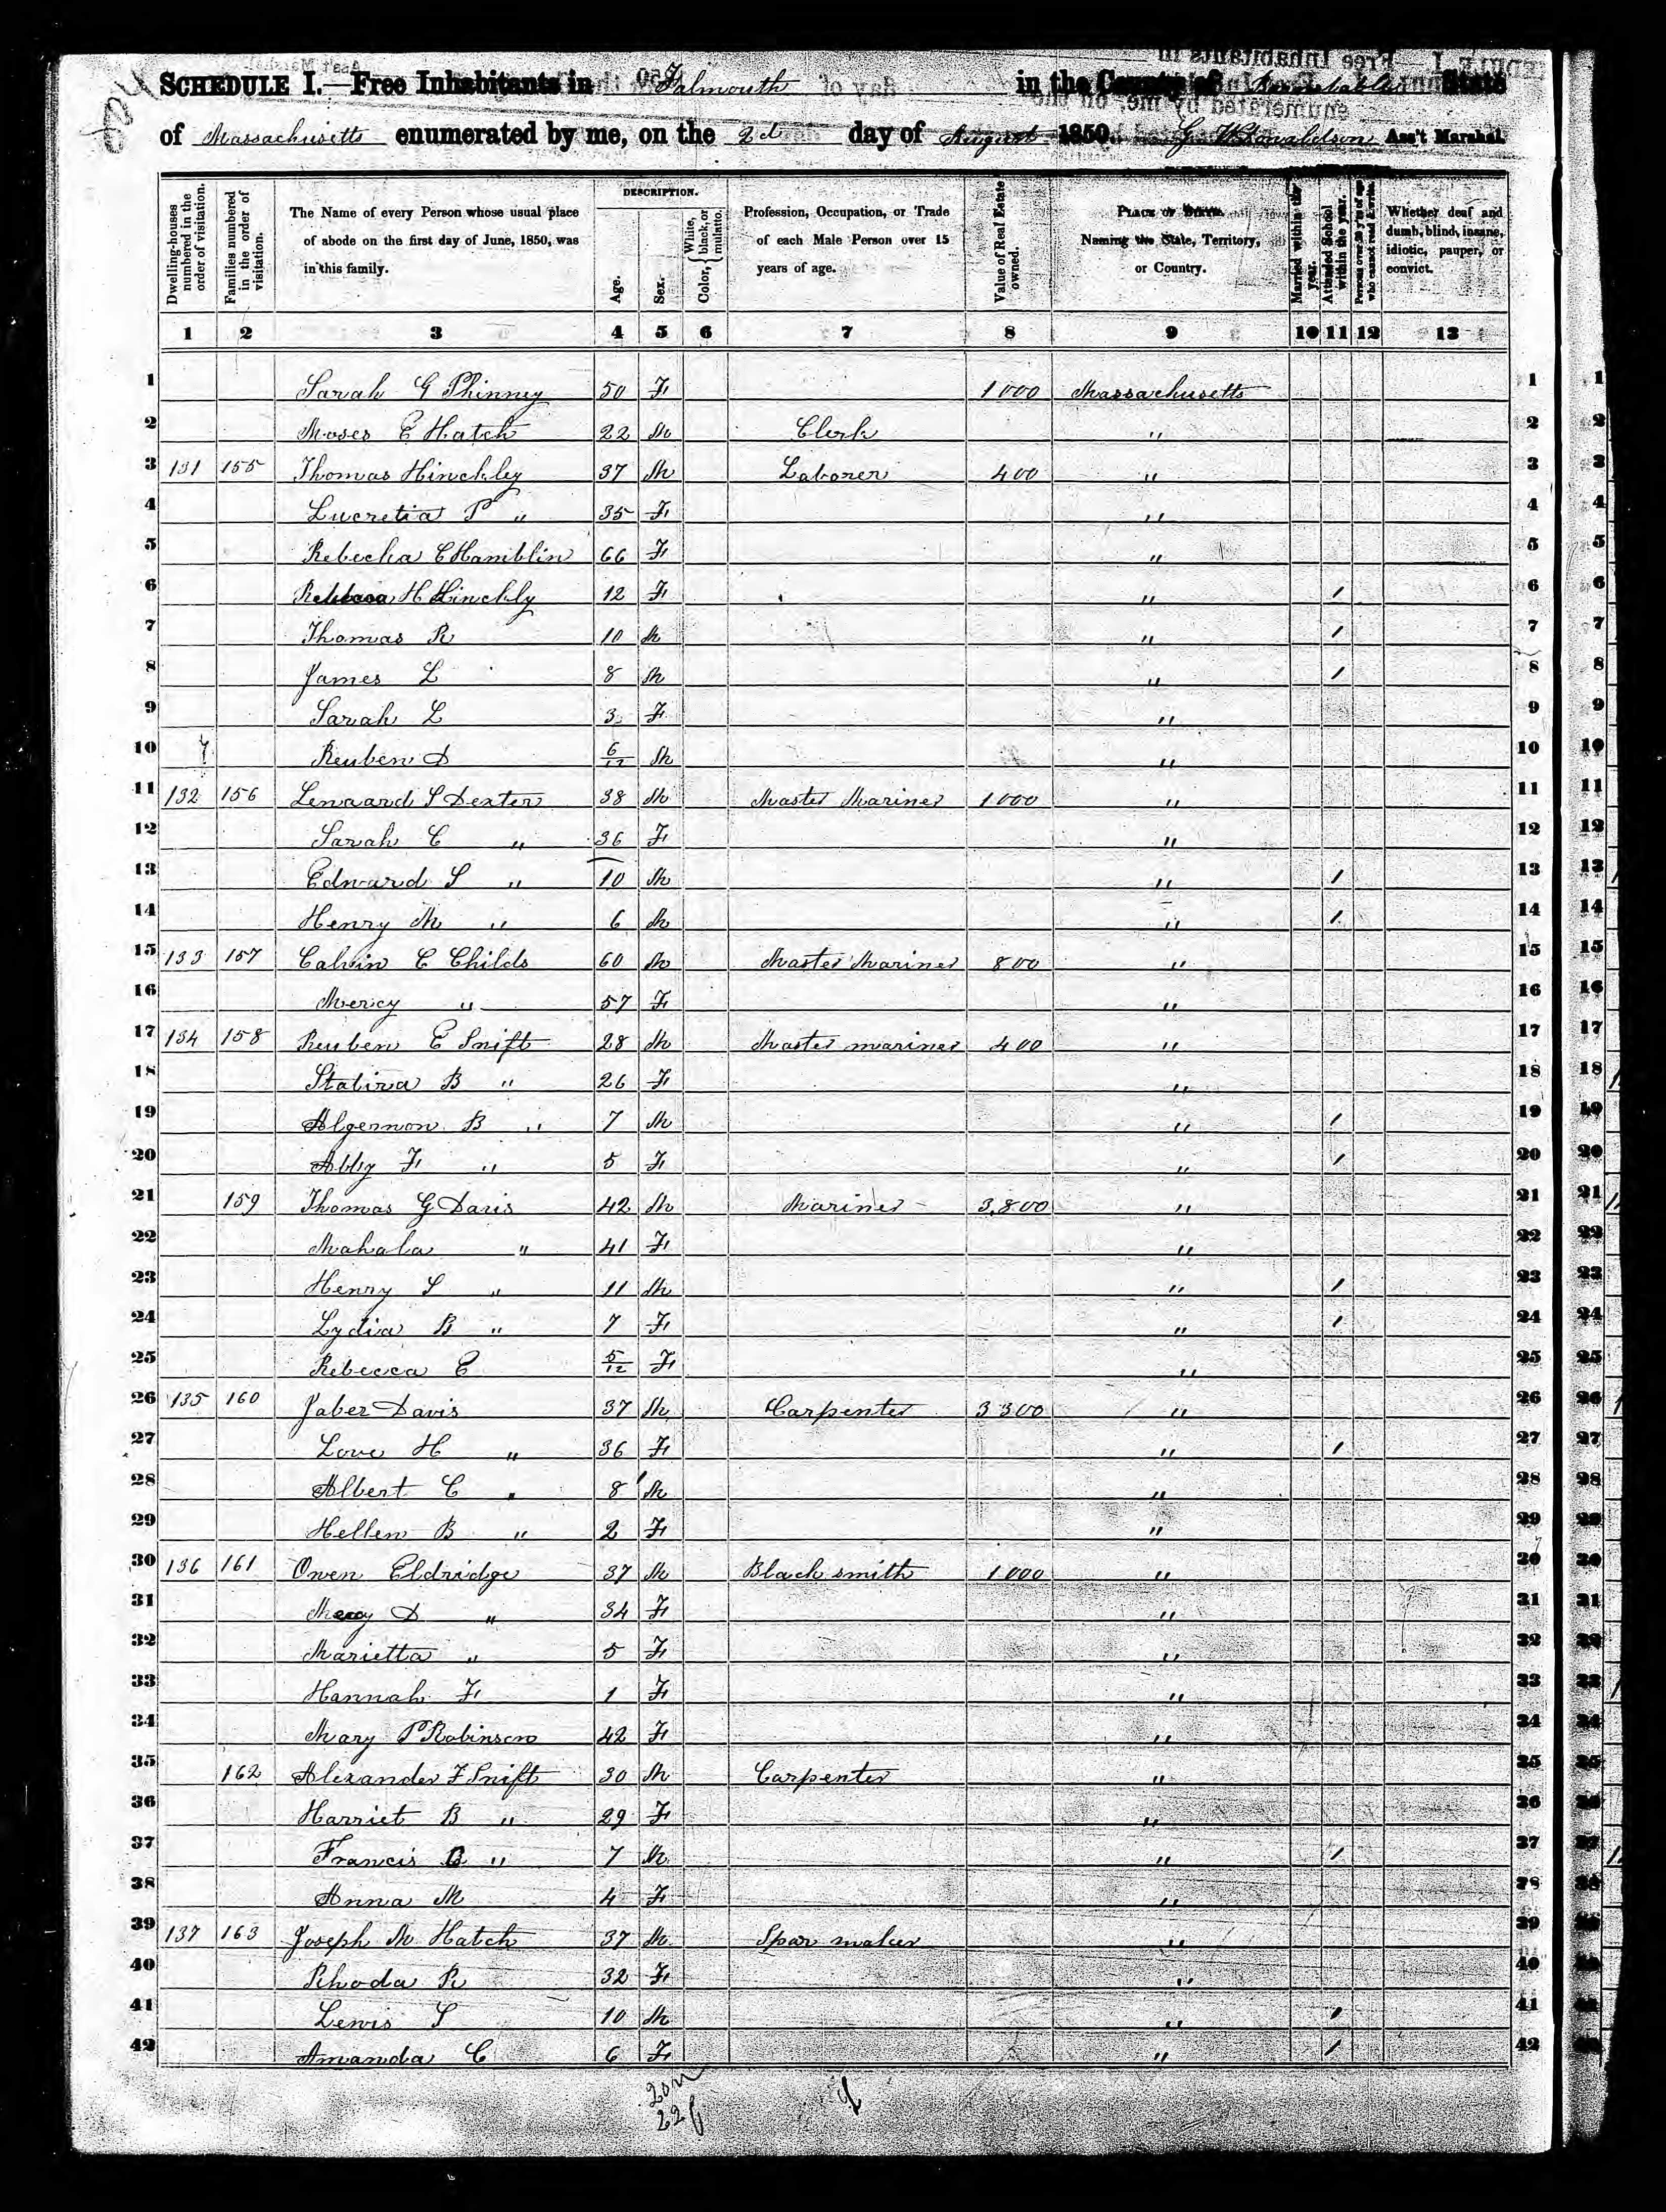 SCHEDULE I.—Free Inhabitants in Falmouth in the County of Barnstable State
of Massachusetts enumerated by me, on the 2d day of August 1850. Ass't Marshal.
DESCRIPTION.
Dwelling-houses numbered in the order of visitation.
Families numbered in the order of visitation.
The Name of every Person whose usual place of abode on the first day of June, 1850, was in this family.
Age.
Sex.
Color, { White, black, or mulatto.
Profession, Occupation, or Trade of each Male Person over 15 years of age.
Value of Real Estate owned.
PLACE OF BIRTH. Naming the State, Territory, or Country.
Married within the year.
Attended School within the year.
Persons over 20 y'rs of age who cannot read & write.
Whether deaf and dumb, blind, insane, idiotic, pauper, or convict.
1 2 3 4 5 6 7 8 9 10 11 12 13
1 Sarah G Phinney 50 F 1000 Massachusetts 1
2 Moses E Hatch 22 M Clerk " 2
3 131 155 Thomas Hinckley 37 M Laborer 400 " 3
4 Lucretia P " 35 F " 4
5 Rebecka C Hamblin 66 F " 5
6 Rebecca H Hinckly 12 F " / 6
7 Thomas R 10 M " / 7
8 James L 8 M " / 8
9 Sarah L 3 F " 9
10 Reuben D 6/12 M " 10
11 132 156 Lenaard S Dexter 38 M Master Mariner 1000 " 11
12 Sarah C " 36 F " 12
13 Edward S " 10 M " / 13
14 Henry M " 6 M " / 14
15 133 157 Calvin C Childs 60 M Master Mariner 800 " 15
16 Mercy " 57 F " 16
17 134 158 Reuben E Swift 28 M Master mariner 400 " 17
18 Statira B " 26 F " 18
19 Algernon B " 7 M " / 19
20 Abby F " 5 F " / 20
21 159 Thomas G Davis 42 M Mariner 3,800 " 21
22 Mahala " 41 F " 22
23 Henry S " 11 M " / 23
24 Lydia B " 7 F " / 24
25 Rebecca C 5/12 F " 25
26 135 160 Jabez Davis 37 M Carpenter 3300 " 26
27 Love H " 36 F " / 27
28 Albert C " 8 M " 28
29 Hellen B " 2 F " 29
30 136 161 Owen Eldridge 37 M Black smith 1000 " 30
31 Mercy D " 34 F " 31
32 Marietta " 5 F " 32
33 Hannah F 1 F " 33
34 Mary P Robinson 42 F " 34
35 162 Alexander F Swift 30 M Carpenter " 35
36 Harriet B " 29 F " 36
37 Francis B " 7 M " / 37
38 Anna M 4 F " 38
39 137 163 Joseph M Hatch 37 M Spar maker " 39
40 Rhoda R 32 F " 40
41 Lewis S 10 M " / 41
42 Amanda C 6 F " / 42
20 m
22 f